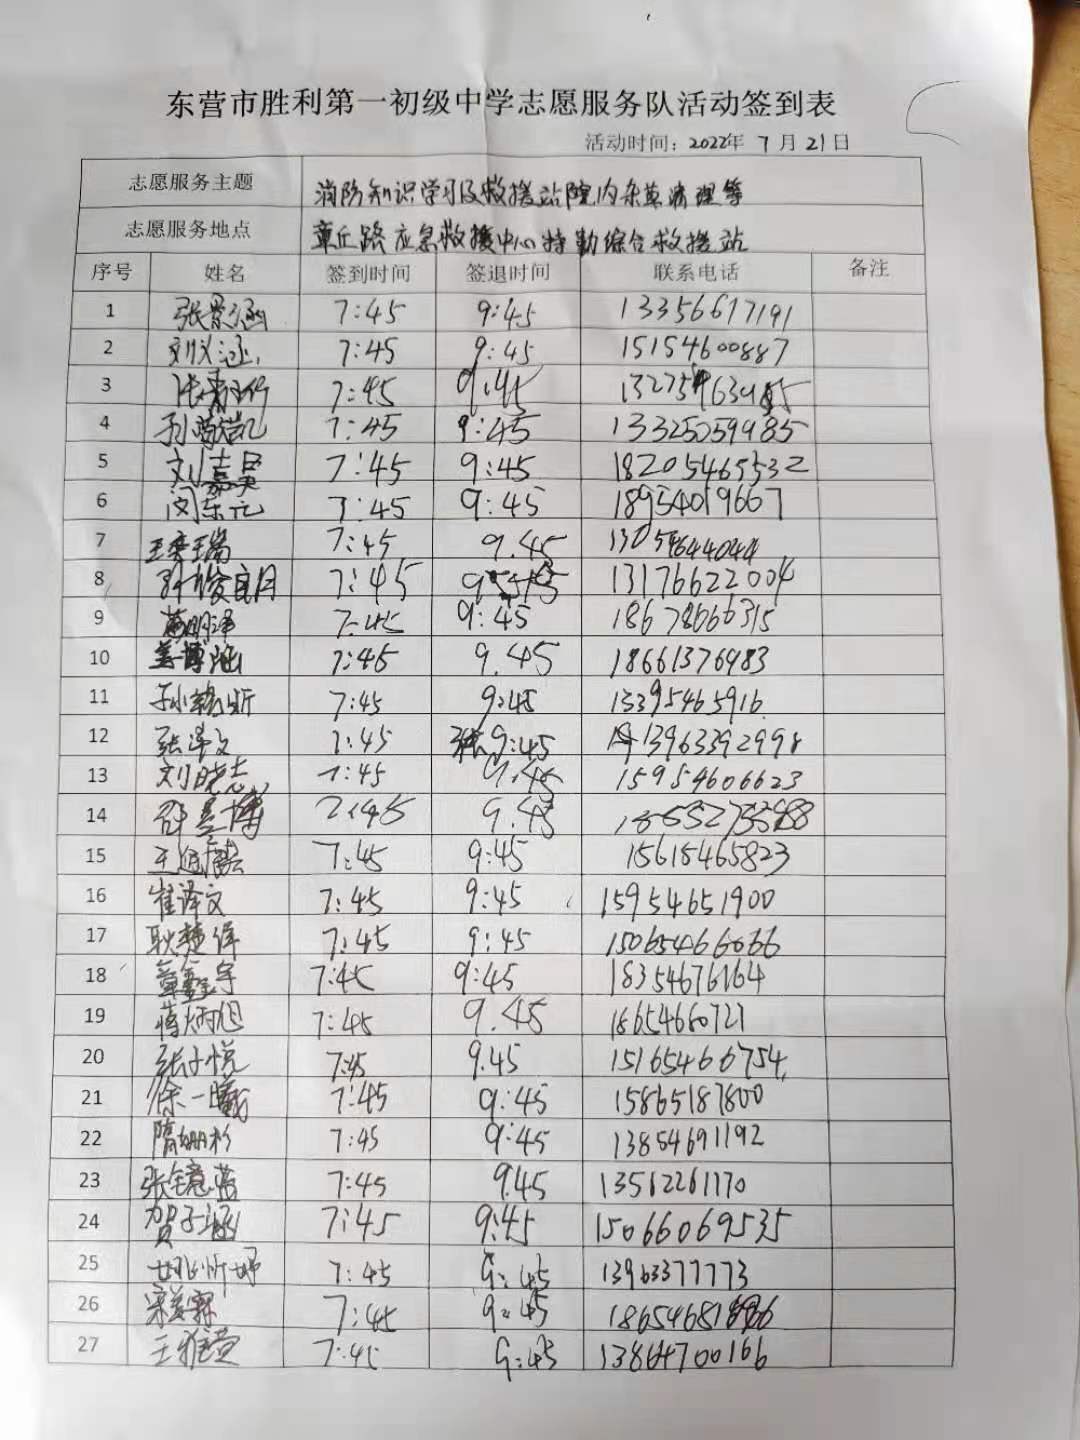 东营市胜利第一初级中学志愿服务队活动签到表
活动时间：2022年 7 月 21 日
志愿服务主题 消防知识学习及救援站院内杂草清理等
志愿服务地点 章丘路应急救援中心特勤综合救援站
序号 姓名 签到时间 签退时间 联系电话 备注
1 张景涵 7:45 9:45 13356617191
2 刘义涵 7:45 9:45 15154600887
3 7:45 9:45
4 7:45 9:45 13325059985
5 刘嘉昊 7:45 9:45 18205465532
6 闵东元 7:45 9:45 18954019667
7 王奕瑞 7:45 9.45
8 7:45 13176622004
9 7:45 9:45 18678666315
10 姜博涵 7:45 9.45 18661376983
11 7:45 9:45 13395465916
12 张泽文 7:45 9:45 13963392998
13 刘晓志 7:45 9.45 15954606623
14 7:45 9.45
15 7:45 9:45 15615465823
16 崔译文 7:45 9:45 15954651900
17 耿楚伟 7:45 9:45 15065466066
18 7:45 9:45 18354676164
19 蒋炳旭 7:45 9.45 18654660721
20 张子悦 7:45 9.45 15165466754
21 徐一曦 7:45 9:45 15865187800
22 隋姗杉 7:45 9:45 13854691192
23 张镱蓝 7:45 9.45 13562261170
24 贺子涵 7:45 9:45 15066069535
25 姚忻妤 7:45 9:45 13963377773
26 7:45 9:45
27 王雅萱 7:45 9:45 13864700166